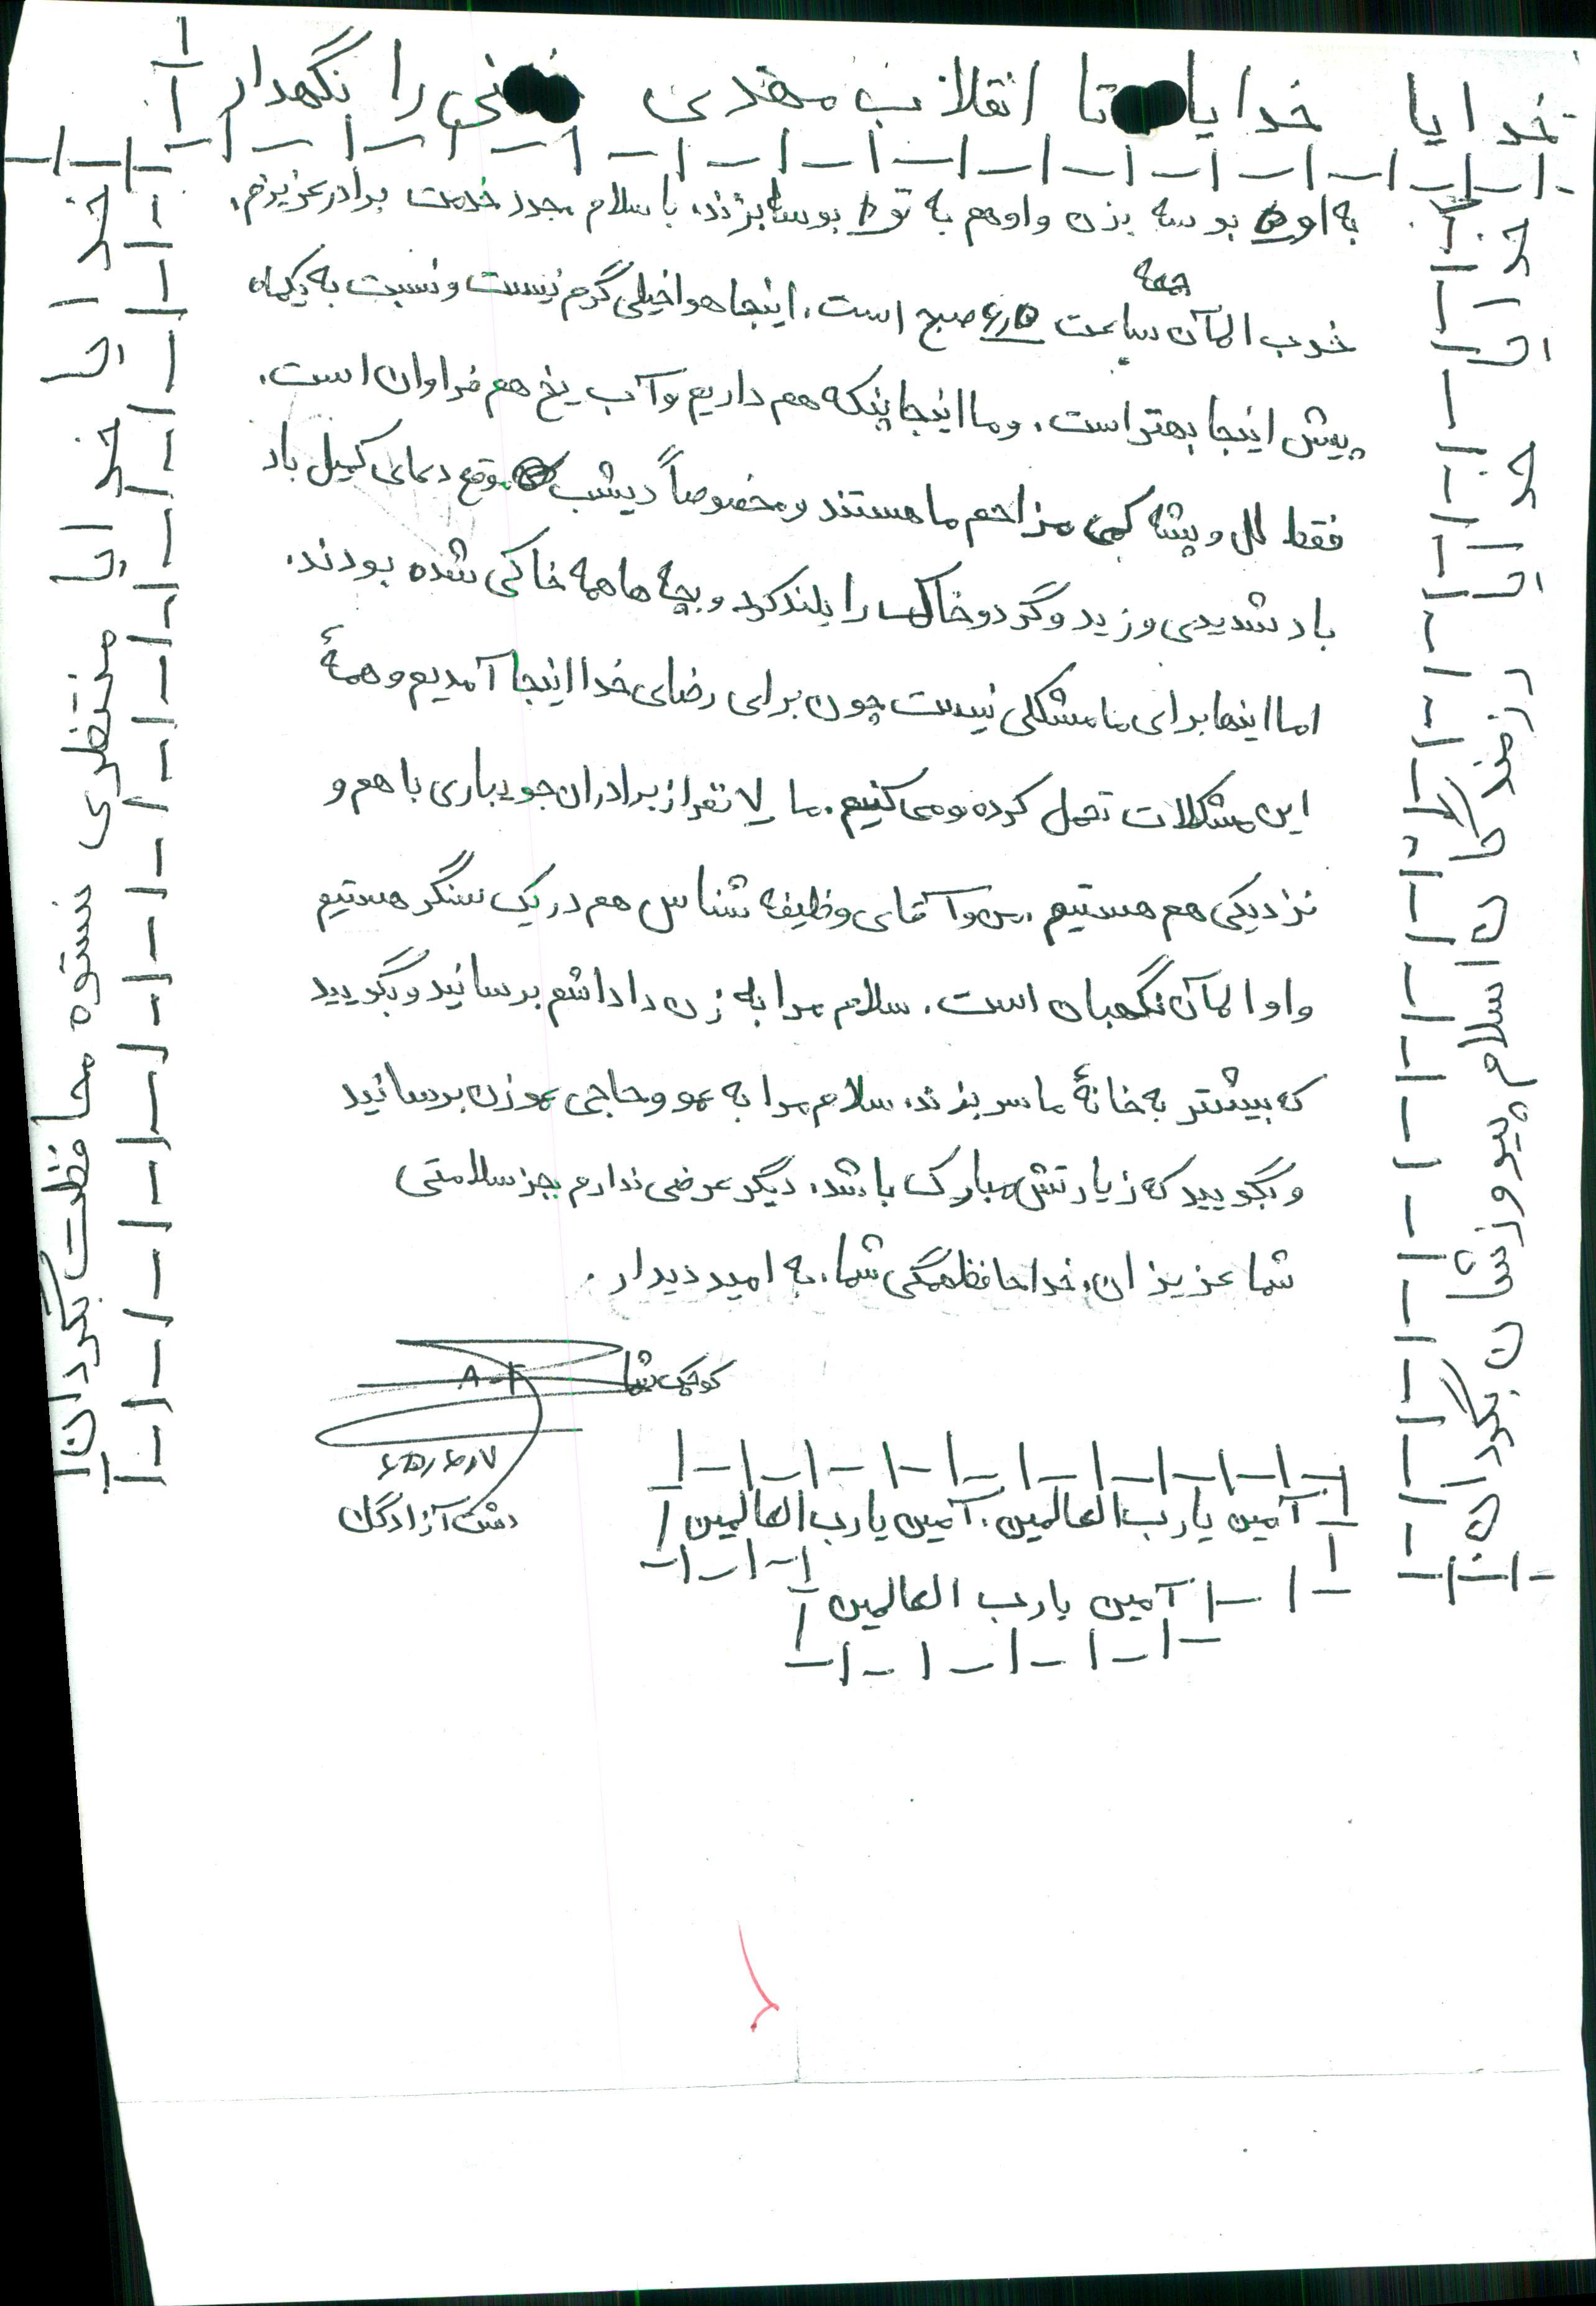 خدایا خدایا تا انقلاب مهدی خمینی را نگهدار
به او بوسه بزن و او هم به تو بوسه بزند. با سلام مجدد خدمت برادر عزیزم.
جمعه
خوب الآن ساعت ۶٫۵ صبح است. اینجا هوا خیلی گرم نیست و نسبت به یکماه
پیش اینجا بهتر است. و ما اینجا پنکه هم داریم و آب یخ هم فراوان است.
فقط و پشه کمی مزاحم ما هستند و مخصوصاً دیشب موقع دعای کمیل باد
باد شدیدی وزید و گرد و خاک را بلند کرد و بچه ها همه خاکی شده بودند.
اما اینها برای ما مشکلی نیست چون برای رضای خدا اینجا آمدیم و همهٔ
این مشکلات تحمل کرده و می کنیم. ما نفر از برادران جویباری با هم و
نزدیکی هم هستیم. من و آقای وظیفه شناس هم در یک سنگر هستیم
و او الآن نگهبان است. سلام مرا به زن داداشم برسانید و بگویید
که بیشتر به خانهٔ ما سر بزند. سلام مرا به عمو و حاجی عموزن برسانید
و بگویید که زیارتش مبارک باشد. دیگر عرضی ندارم بجز سلامتی
شما عزیزان. خدا حافظ همگی شما. به امید دیدار.
کوچک شما
۶۵٫۴٫۷
دشت آزادگان
آمین یا رب العالمین. آمین یا رب العالمین
آمین یا رب العالمین
خدایا خدایا رزمندگان اسلام پیروزشان بگردان
خدایا خدایا منتظری نستوه محافظت بگردان